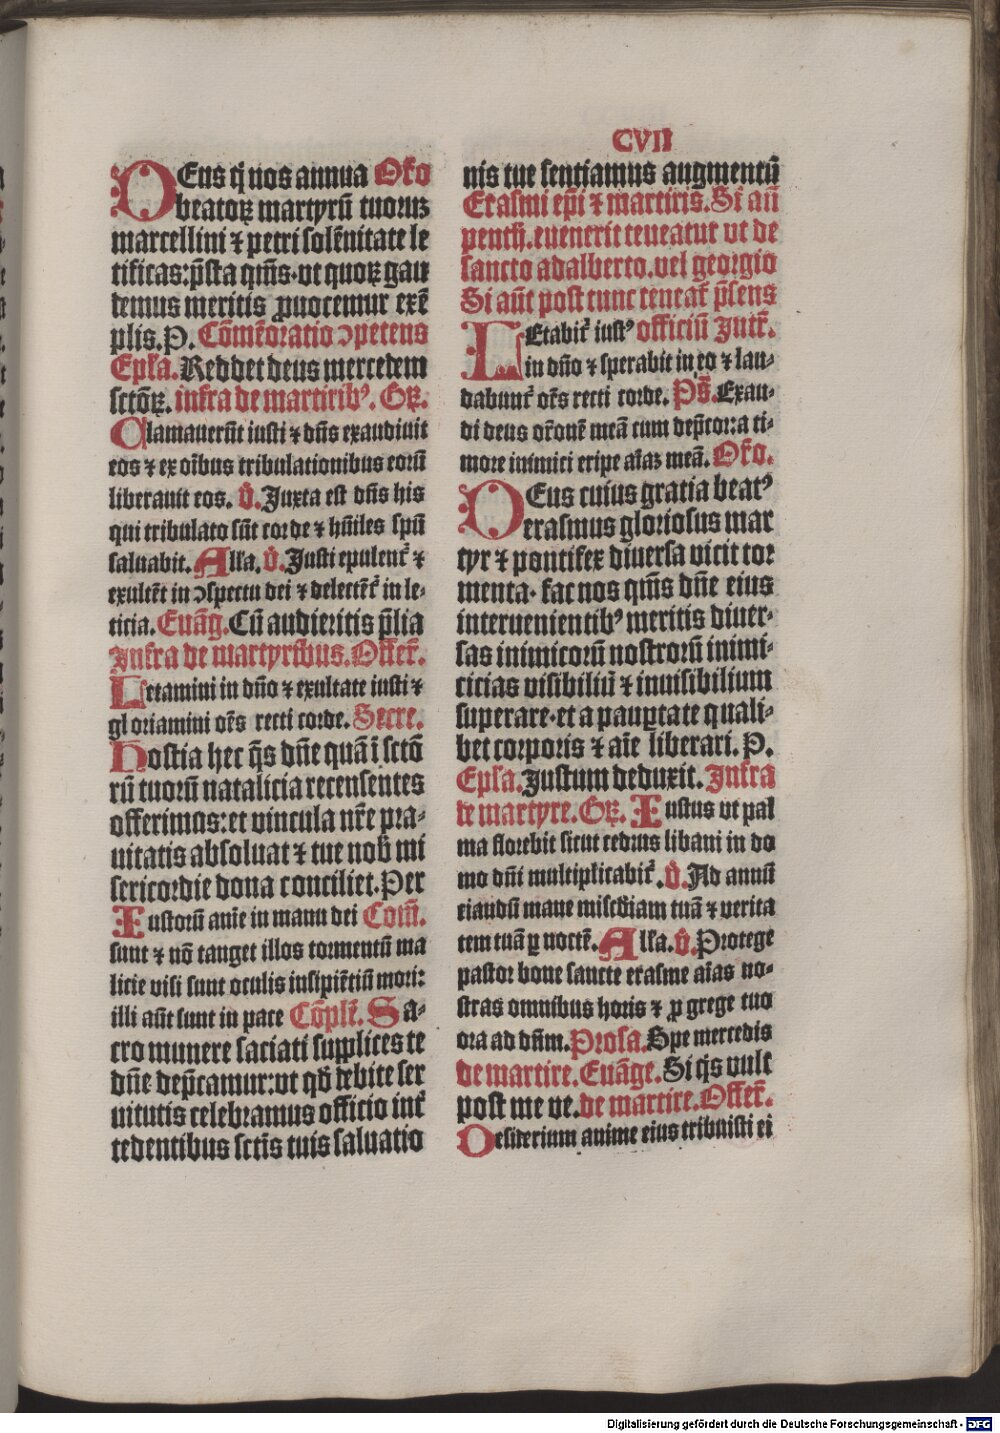 CVII
DEus q̃ nos annua Orõ
beatorꝝ martyrũ tuorum
marcellini ⁊ petri solẽnitate le
tificas: p̃sta qm̃s. vt quorꝝ gau
demus meritis ꝓuocemur exẽ
plis. P. Cõmẽoratio ɔpetens
Epl̃a. Reddet deus mercedem
sctõꝝ. infra de martiribꝰ. Gꝝ.
Clamauerũt iusti ⁊ dñs exaudiuit
eos ⁊ ex oĩbus tribulationibus eorũ
liberauit eos. v̉. Juxta est dñs his
qui tribulato sũt corde ⁊ hũiles spũ
saluabit. Alla. v̉. Justi epulent̉ ⁊
exultẽt in ɔspectu dei ⁊ delectẽt̉ in le-
ticia. Euãg. Cũ audieritis p̃lia
Infra de martyribus. Offer̃.
Letamini in dño ⁊ exultate iusti ⁊
gloriamini oẽs recti corde. Secre.
Hostia hec q̃s dñe quã ĩ sctõ
rũ tuorũ natalicia recensentes
offerimus: et vincula nr̃e pra-
uitatis absoluat ⁊ tue nob̃ mi
sericordie dona conciliet. Per
Iustorũ anĩe in manu dei Com̃.
sunt ⁊ nõ tanget illos tormentũ ma
licie visi sunt oculis insipiẽtiũ mori:
illi aũt sunt in pace Cõplẽ. Sa-
cro munere saciati supplices te
dñe dep̃camur: vt qđ debite ser
uitutis celebramus officio int̉
cedentibus sctĩs tuis saluatio
nis tue sentiamus augmentũ
Erasmi ep̃i ⁊ martiris. Si añ
penth. euenerit teneatur vt de
sancto adalberto. vel georgio
Si aũt post tunc teneat̉ p̃sens
LEtabit̉ iustꝰ officiũ Intr̃.
in dño ⁊ sperabit in eo ⁊ lau-
dabunt̉ oẽs recti corde. Ps̃. Exau-
di deus orõnẽ meã cum dep̃cor: a ti-
more inimici eripe aĩaz meã. Orõ.
DEus cuius gratia beatꝰ
erasmus gloriosus mar
tyr ⁊ pontifex diuersa vicit tor
menta. fac nos qm̃s dñe eius
interuenientibꝰ meritis diuer-
sas inimicorũ nostrorũ inimi-
cicias visibiliũ ⁊ inuisibilium
superare. et a paup̱tate quali-
bet corporis ⁊ aĩe liberari. P.
Epl̃a. Justum deduxit. Infra
de martyre. Gꝝ. Iustus vt pal
ma florebit sicut cedrus libani in do
mo dñi multiplicabit̉. v̉. Ad annũ
ciandũ mane misc̃diam tuã ⁊ verita
tem tuã ꝑ noctẽ. Alla. v̉. Protege
pastor bone sancte erasme aĩas no-
stras omnibus horis ⁊ ꝓ grege tuo
ora ad dñm. Prosa. Spe mercedis
de martire. Euãge. Si q̃s vult
post me ve. de martire. Offer̃.
Desiderium anime eius tribuisti ei
Digitalisierung gefördert durch die Deutsche Forschungsgemeinschaft - DFG